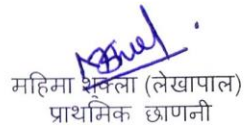 महिमा शुक्ला (लेखापाल)
प्राथमिक छाणनी